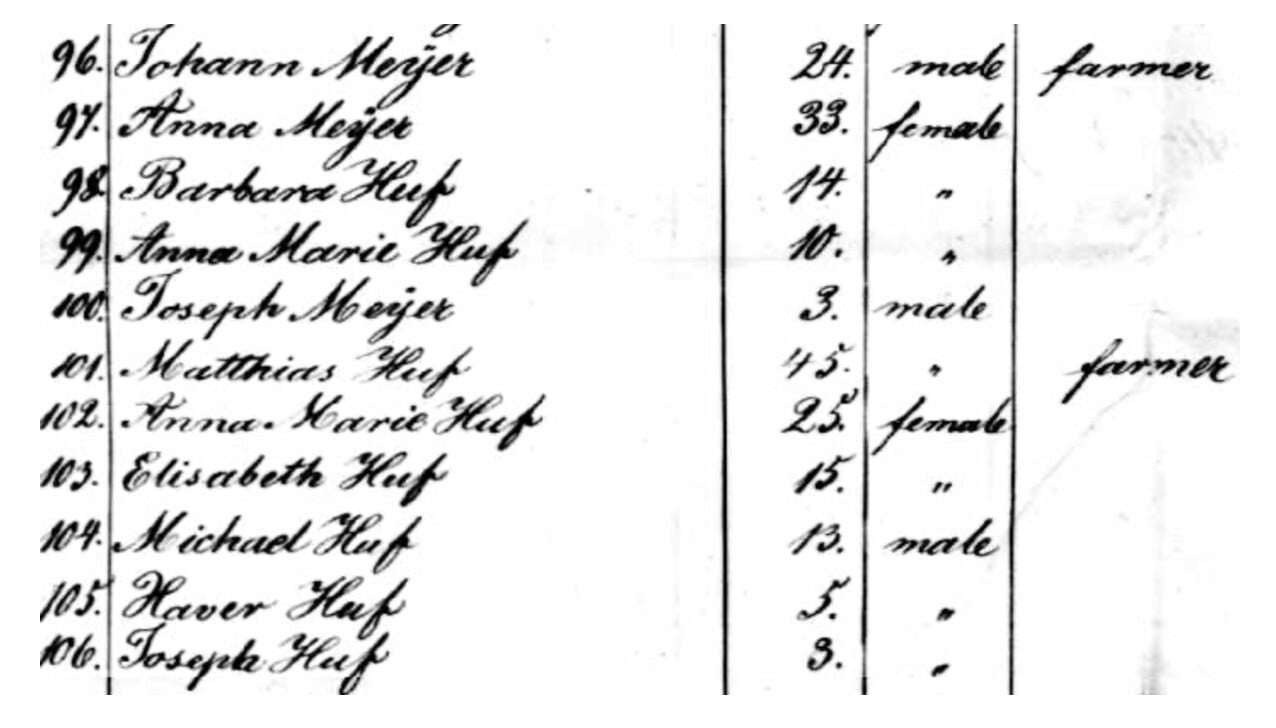 96. Johann Meÿer 24. male farmer
97. Anna Meÿer 33. female
98. Barbara Huf 14. "
99. Anna Marie Huf 10. "
100. Joseph Meÿer 3. male
101. Matthias Huf 45. " farmer
102. Anna Marie Huf 25. female
103. Elisabeth Huf 15. "
104. Michael Huf 13. male
105. Xaver Huf 5. "
106. Joseph Huf 3. "